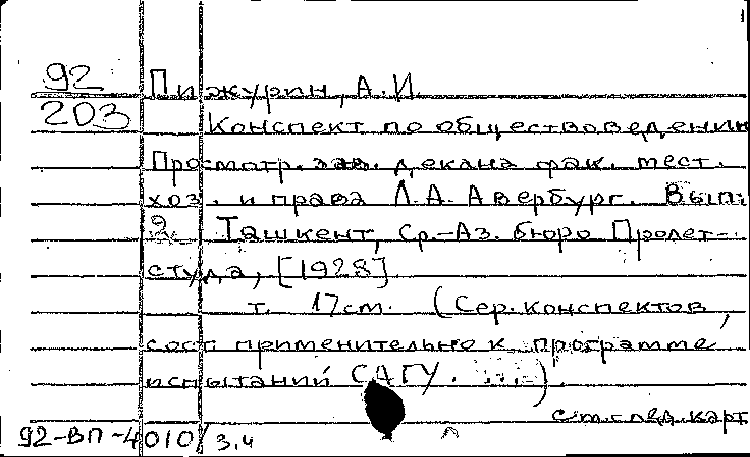 92
203
Пижурин, А.И
Конспект по обществоведению
Просмотр. зав. декана фак. мест.
хоз. и права Л.А. Авербург. Вып.
2 Ташкент, Ср.-Аз. бюро Пролет-
студа, [1928]
т. 17см. (Сер. конспектов,
сост применительно к программе
испытаний САГУ. ...).
См. след. карт
92-ВП-4010/3,4